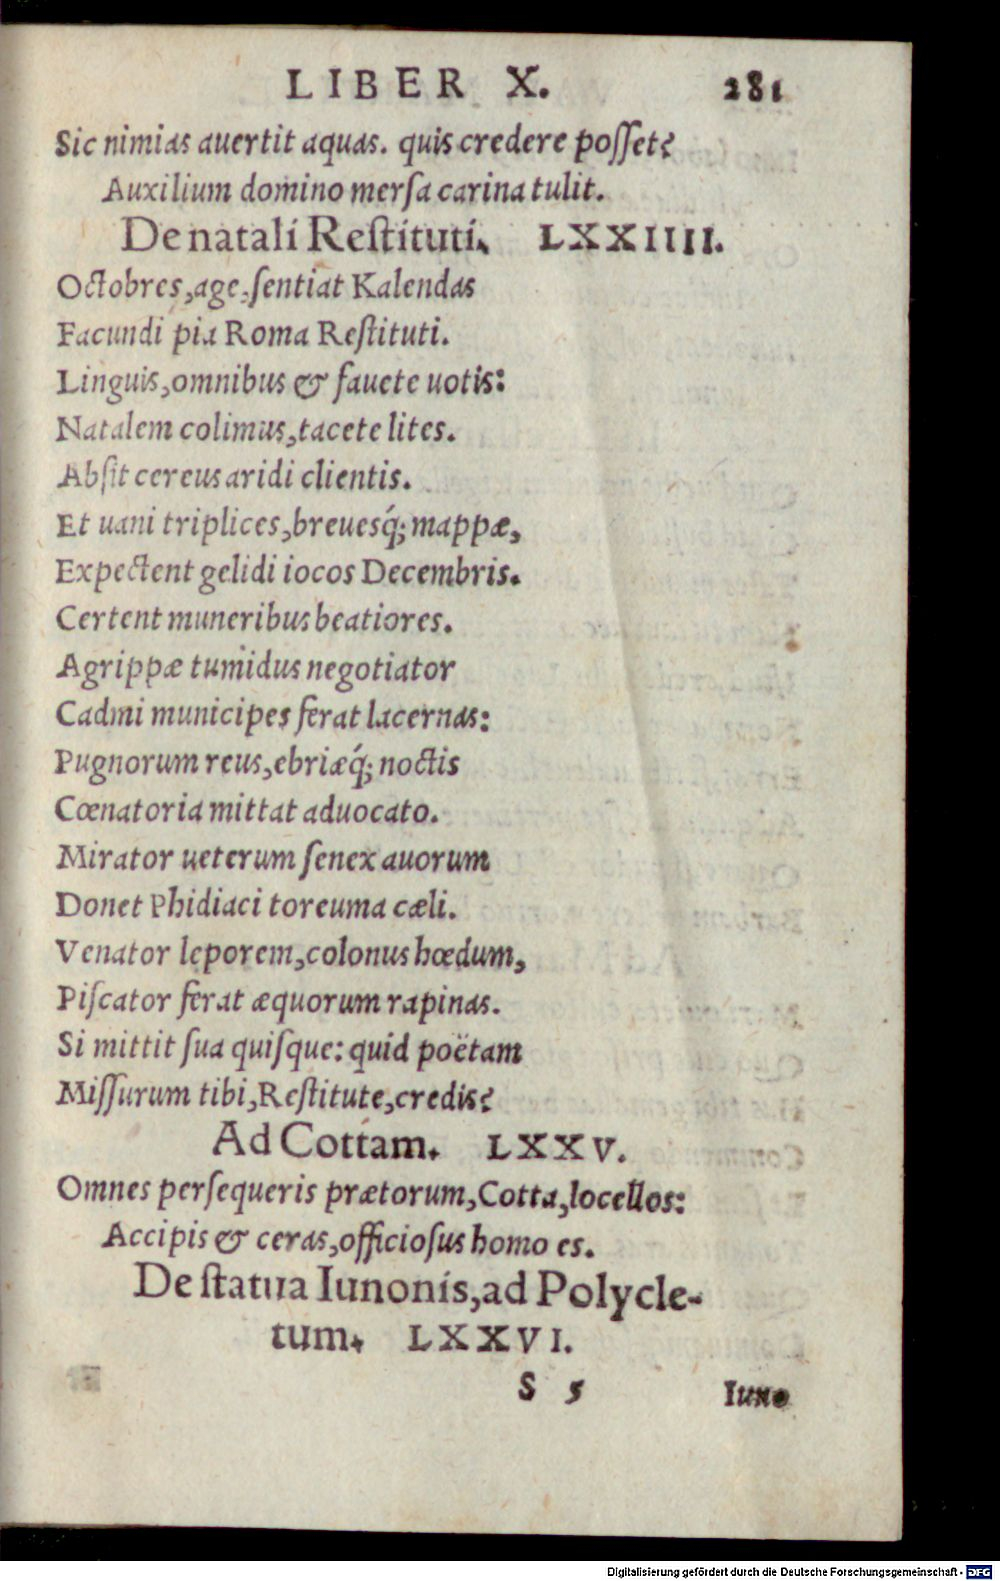 LIBER X. 281
Sic nimias auertit aquas. quis credere poſſet?
Auxilium domino merſa carina tulit.
De natali Reſtituti. LXXIIII.
Octobres, age, ſentiat Kalendas
Facundi pia Roma Reſtituti.
Linguis, omnibus & fauete uotis:
Natalem colimus, tacete lites.
Abſit cereus aridi clientis.
Et uani triplices, breuesq́; mappæ,
Expectent gelidi iocos Decembris.
Certent muneribus beatiores.
Agrippæ tumidus negotiator
Cadmi municipes ferat lacernas:
Pugnorum reus, ebriæq́; noctis
Cœnatoria mittat aduocato.
Mirator ueterum ſenex auorum
Donet Phidiaci toreuma cæli.
Venator leporem, colonus hœdum,
Piſcator ferat æquorum rapinas.
Si mittit ſua quiſque: quid poëtam
Miſſurum tibi, Reſtitute, credis?
Ad Cottam. LXXV.
Omnes perſequeris prætorum, Cotta, locellos:
Accipis & ceras, officioſus homo es.
De ſtatua Iunonis, ad Polycle-
tum. LXXVI.
S 5 Iuno
Digitalisierung gefördert durch die Deutsche Forschungsgemeinschaft - DFG